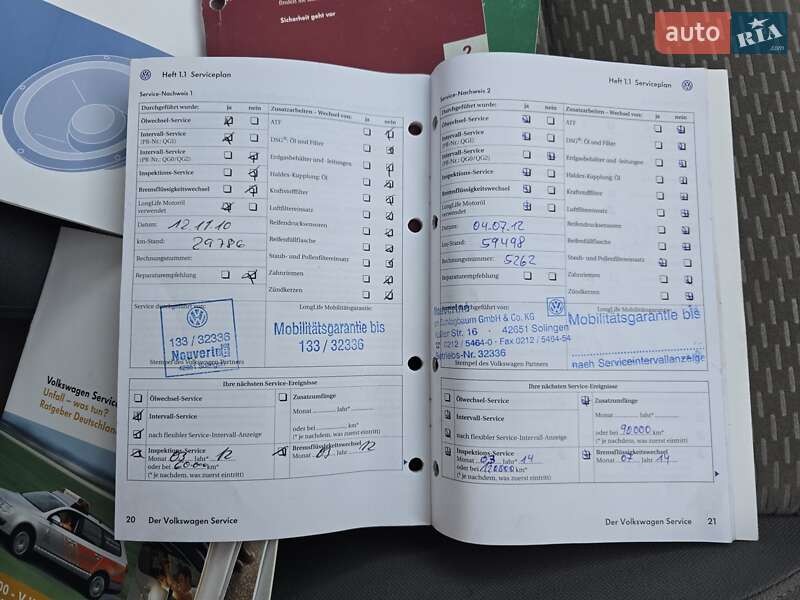 finden Sie
Sicherheit geht vor
2
auto RIA
.com
Heft 1.1 Serviceplan
Service-Nachweis 1
Durchgeführt wurde: ja nein
Zusatzarbeiten - Wechsel von: ja nein
Ölwechsel-Service
Intervall-Service
(PR-Nr.: QG1)
Intervall-Service
(PR-Nr.: QG0/QG2)
Inspektions-Service
Bremsflüssigkeitswechsel
LongLife Motoröl
verwendet
Datum: 12 11 10
km-Stand: 29786
Rechnungsnummer:
Reparaturempfehlung
ATF
DSG®: Öl und Filter
Erdgasbehälter und -leitungen
Haldex-Kupplung: Öl
Kraftstofffilter
Luftfiltereinsatz
Reifendrucksensoren
Reifenfüllflasche
Staub- und Pollenfiltereinsatz
Zahnriemen
Zündkerzen
Service durchgeführt vom:
LongLife Mobilitätsgarantie:
133 / 32336
42651 Solingen
Stempel des Volkswagen Partners
Mobilitätsgarantie bis
133 / 32336
Ihre nächsten Service-Ereignisse
Ölwechsel-Service
Intervall-Service
nach flexibler Service-Intervall-Anzeige
Inspektions-Service
Monat 09 Jahr* 12
oder bei 60000 km*
(* je nachdem, was zuerst eintritt)
Zusatzumfänge
Monat Jahr*
oder bei km*
(* je nachdem, was zuerst eintritt)
Bremsflüssigkeitswechsel
Monat 09 Jahr 12
20 Der Volkswagen Service
Heft 1.1 Serviceplan
Service-Nachweis 2
Durchgeführt wurde: ja nein
Zusatzarbeiten - Wechsel von: ja nein
Ölwechsel-Service
Intervall-Service
(PR-Nr.: QG1)
Intervall-Service
(PR-Nr.: QG0/QG2)
Inspektions-Service
Bremsflüssigkeitswechsel
LongLife Motoröl
verwendet
Datum: 04.07.12
km-Stand: 59498
Rechnungsnummer: 5262
Reparaturempfehlung
ATF
DSG®: Öl und Filter
Erdgasbehälter und -leitungen
Haldex-Kupplung: Öl
Kraftstofffilter
Luftfiltereinsatz
Reifendrucksensoren
Reifenfüllflasche
Staub- und Pollenfiltereinsatz
Zahnriemen
Zündkerzen
durchgeführt vom:
LongLife Mobilitätsgarantie:
GmbH & Co. KG
Str. 16 · 42651 Solingen
0212 / 5464-0 · Fax 0212 / 5464-54
Betriebs-Nr. 32336
Stempel des Volkswagen Partners
Mobilitätsgarantie bis
nach Serviceintervallanzeige
Ihre nächsten Service-Ereignisse
Ölwechsel-Service
Intervall-Service
nach flexibler Service-Intervall-Anzeige
Inspektions-Service
Monat 07 Jahr* 14
oder bei 120000 km*
(* je nachdem, was zuerst eintritt)
Zusatzumfänge
Monat Jahr*
oder bei 90000 km*
(* je nachdem, was zuerst eintritt)
Bremsflüssigkeitswechsel
Monat 07 Jahr 14
Der Volkswagen Service 21
Volkswagen Service
Unfall – was tun?
Ratgeber Deutschland